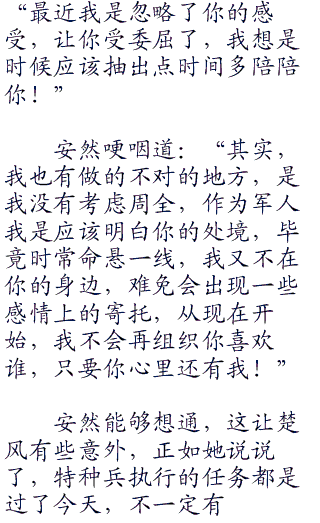 “最近我是忽略了你的感
受，让你受委屈了，我想是
时候应该抽出点时间多陪陪
你！”
安然哽咽道：“其实，
我也有做的不对的地方，是
我没有考虑周全，作为军人
我是应该明白你的处境，毕
竟时常命悬一线，我又不在
你的身边，难免会出现一些
感情上的寄托，从现在开
始，我不会再组织你喜欢
谁，只要你心里还有我！”
安然能够想通，这让楚
风有些意外，正如她说说
了，特种兵执行的任务都是
过了今天，不一定有